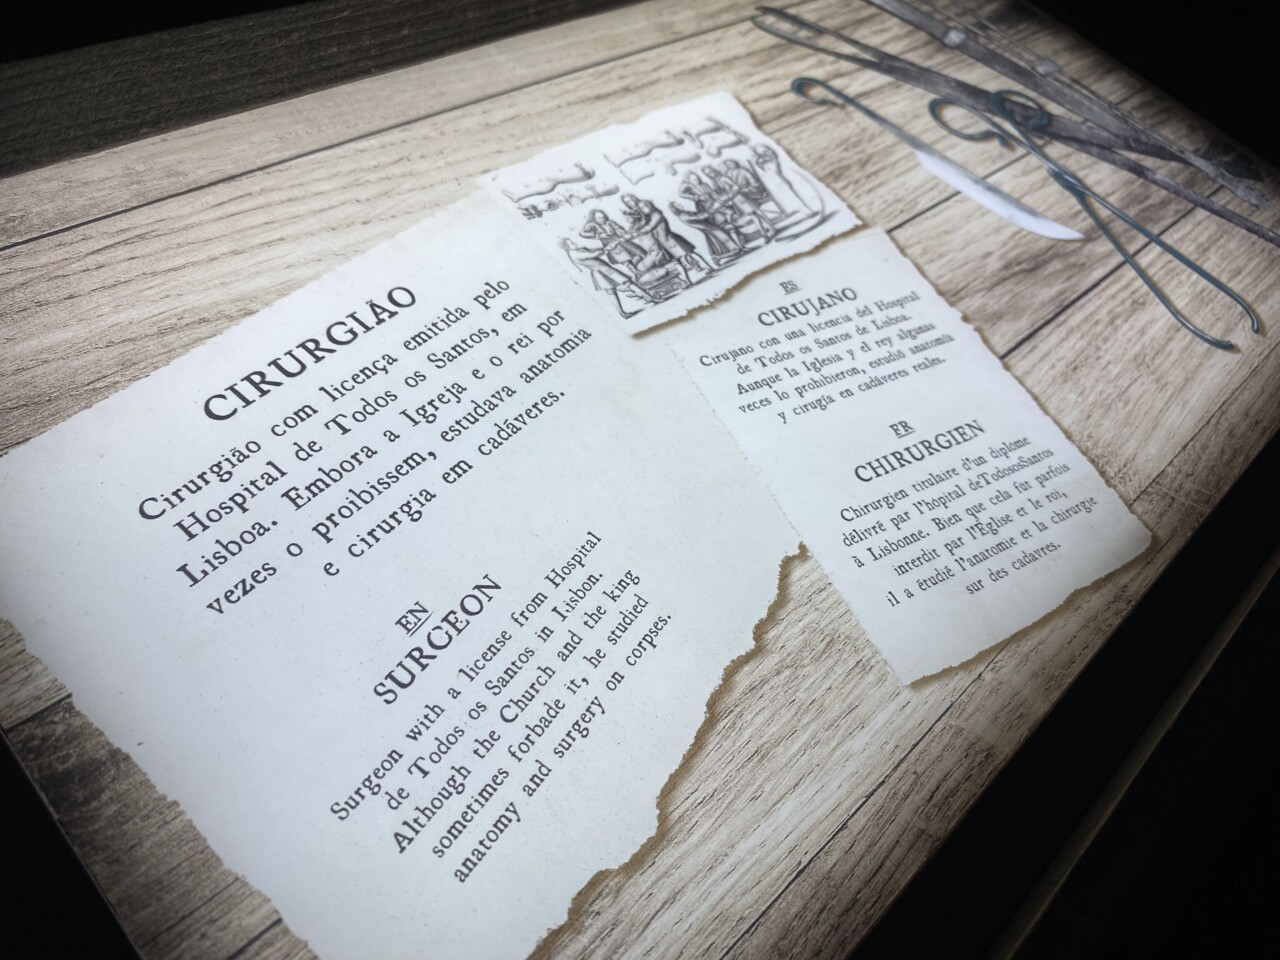 CIRURGIÃO
Cirurgião com licença emitida pelo
Hospital de Todos os Santos, em
Lisboa. Embora a Igreja e o rei por
vezes o proibissem, estudava anatomia
e cirurgia em cadáveres.
EN
SURGEON
Surgeon with a license from Hospital
de Todos os Santos in Lisbon.
Although the Church and the king
sometimes forbade it, he studied
anatomy and surgery on corpses.
ES
CIRUJANO
Cirujano con una licencia del Hospital
de Todos os Santos de Lisboa.
Aunque la Iglesia y el rey algunas
veces lo prohibieron, estudió anatomía
y cirugía en cadáveres reales.
FR
CHIRURGIEN
Chirurgien titulaire d'un diplôme
délivré par l'hôpital deTodososSantos
à Lisbonne. Bien que cela fût parfois
interdit par l'Église et le roi,
il a étudié l'anatomie et la chirurgie
sur des cadavres.